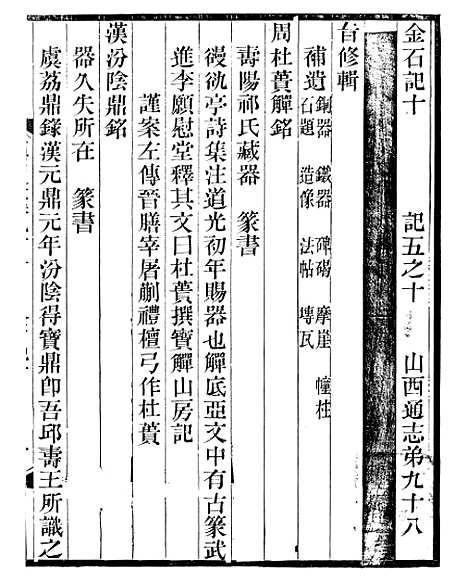 金石記十　記五之十　山西通志弟九十八
台修輯
補遺 銅器 鐵器 碑碣 摩崖 幢柱
石題 造像 法帖 塼瓦
周杜蕢觶銘
壽陽祁氏藏器　篆書
𥧲𥥆亭詩集注道光初年賜器也觶底亞文中有古篆武
進李願慰堂釋其文曰杜蕢撰寶觶山房記
謹案左傳晉膳宰屠蒯禮檀弓作杜蕢
漢汾陰鼎銘
器久失所在　篆書
虞荔鼎錄漢元鼎元年汾陰得寶鼎卽吾邱壽王所識之